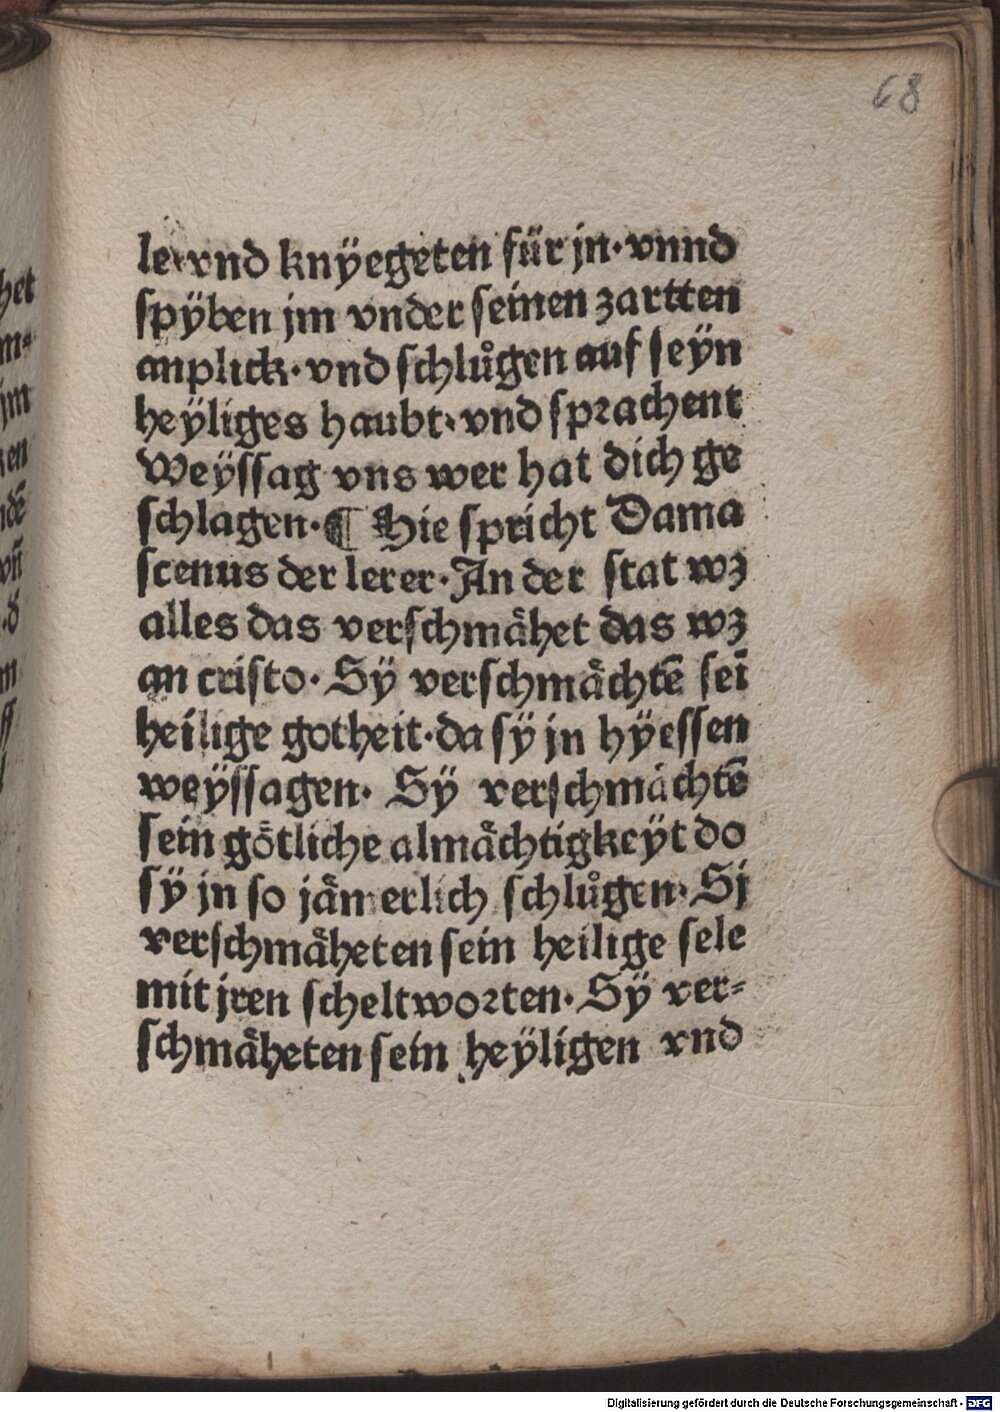 68
le·vnd knÿegeten für jn·vnnd
spÿben jm vnder seinen zartten
anplick·vnd schlůgen auf seÿn
heÿliges haubt·vnd sprachent
Weÿssag vns wer hat dich ge
schlagen·¶ Hie spricht Dama
scenus der lerer·An der stat wz
alles das verschmåhet das wz
an cristo·Sÿ verschmåchtē sei̅
heilige gotheit·da sÿ jn hÿessen
weÿssagen·Sÿ verschmåchtē
sein gȯtliche almåchtigkeÿt do
sÿ jn so jåmerlich schlůgen·Sj
verschmåheten sein heilige sele
mit jren scheltworten·Sÿ ver⸗
schmåheten sein heÿligen vnd
Digitalisierung gefördert durch die Deutsche Forschungsgemeinschaft - DFG